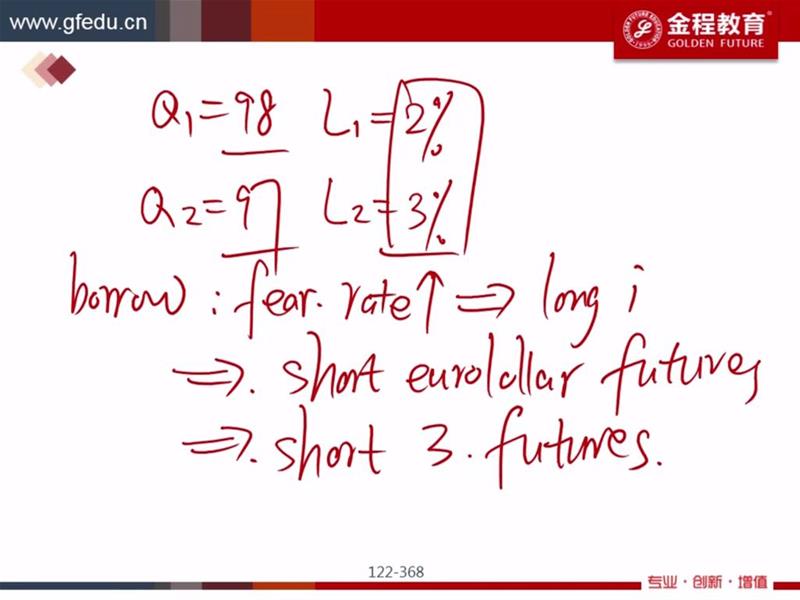 www.gfedu.cn
金程教育®
GOLDEN FUTURE
Q1=98 L1=2%
Q2=97 L2=3%
borrow: fear. rate↑ ⇒ long i
⇒. short eurolollar futures
⇒. short 3. futures.
122-368
专业·创新·增值